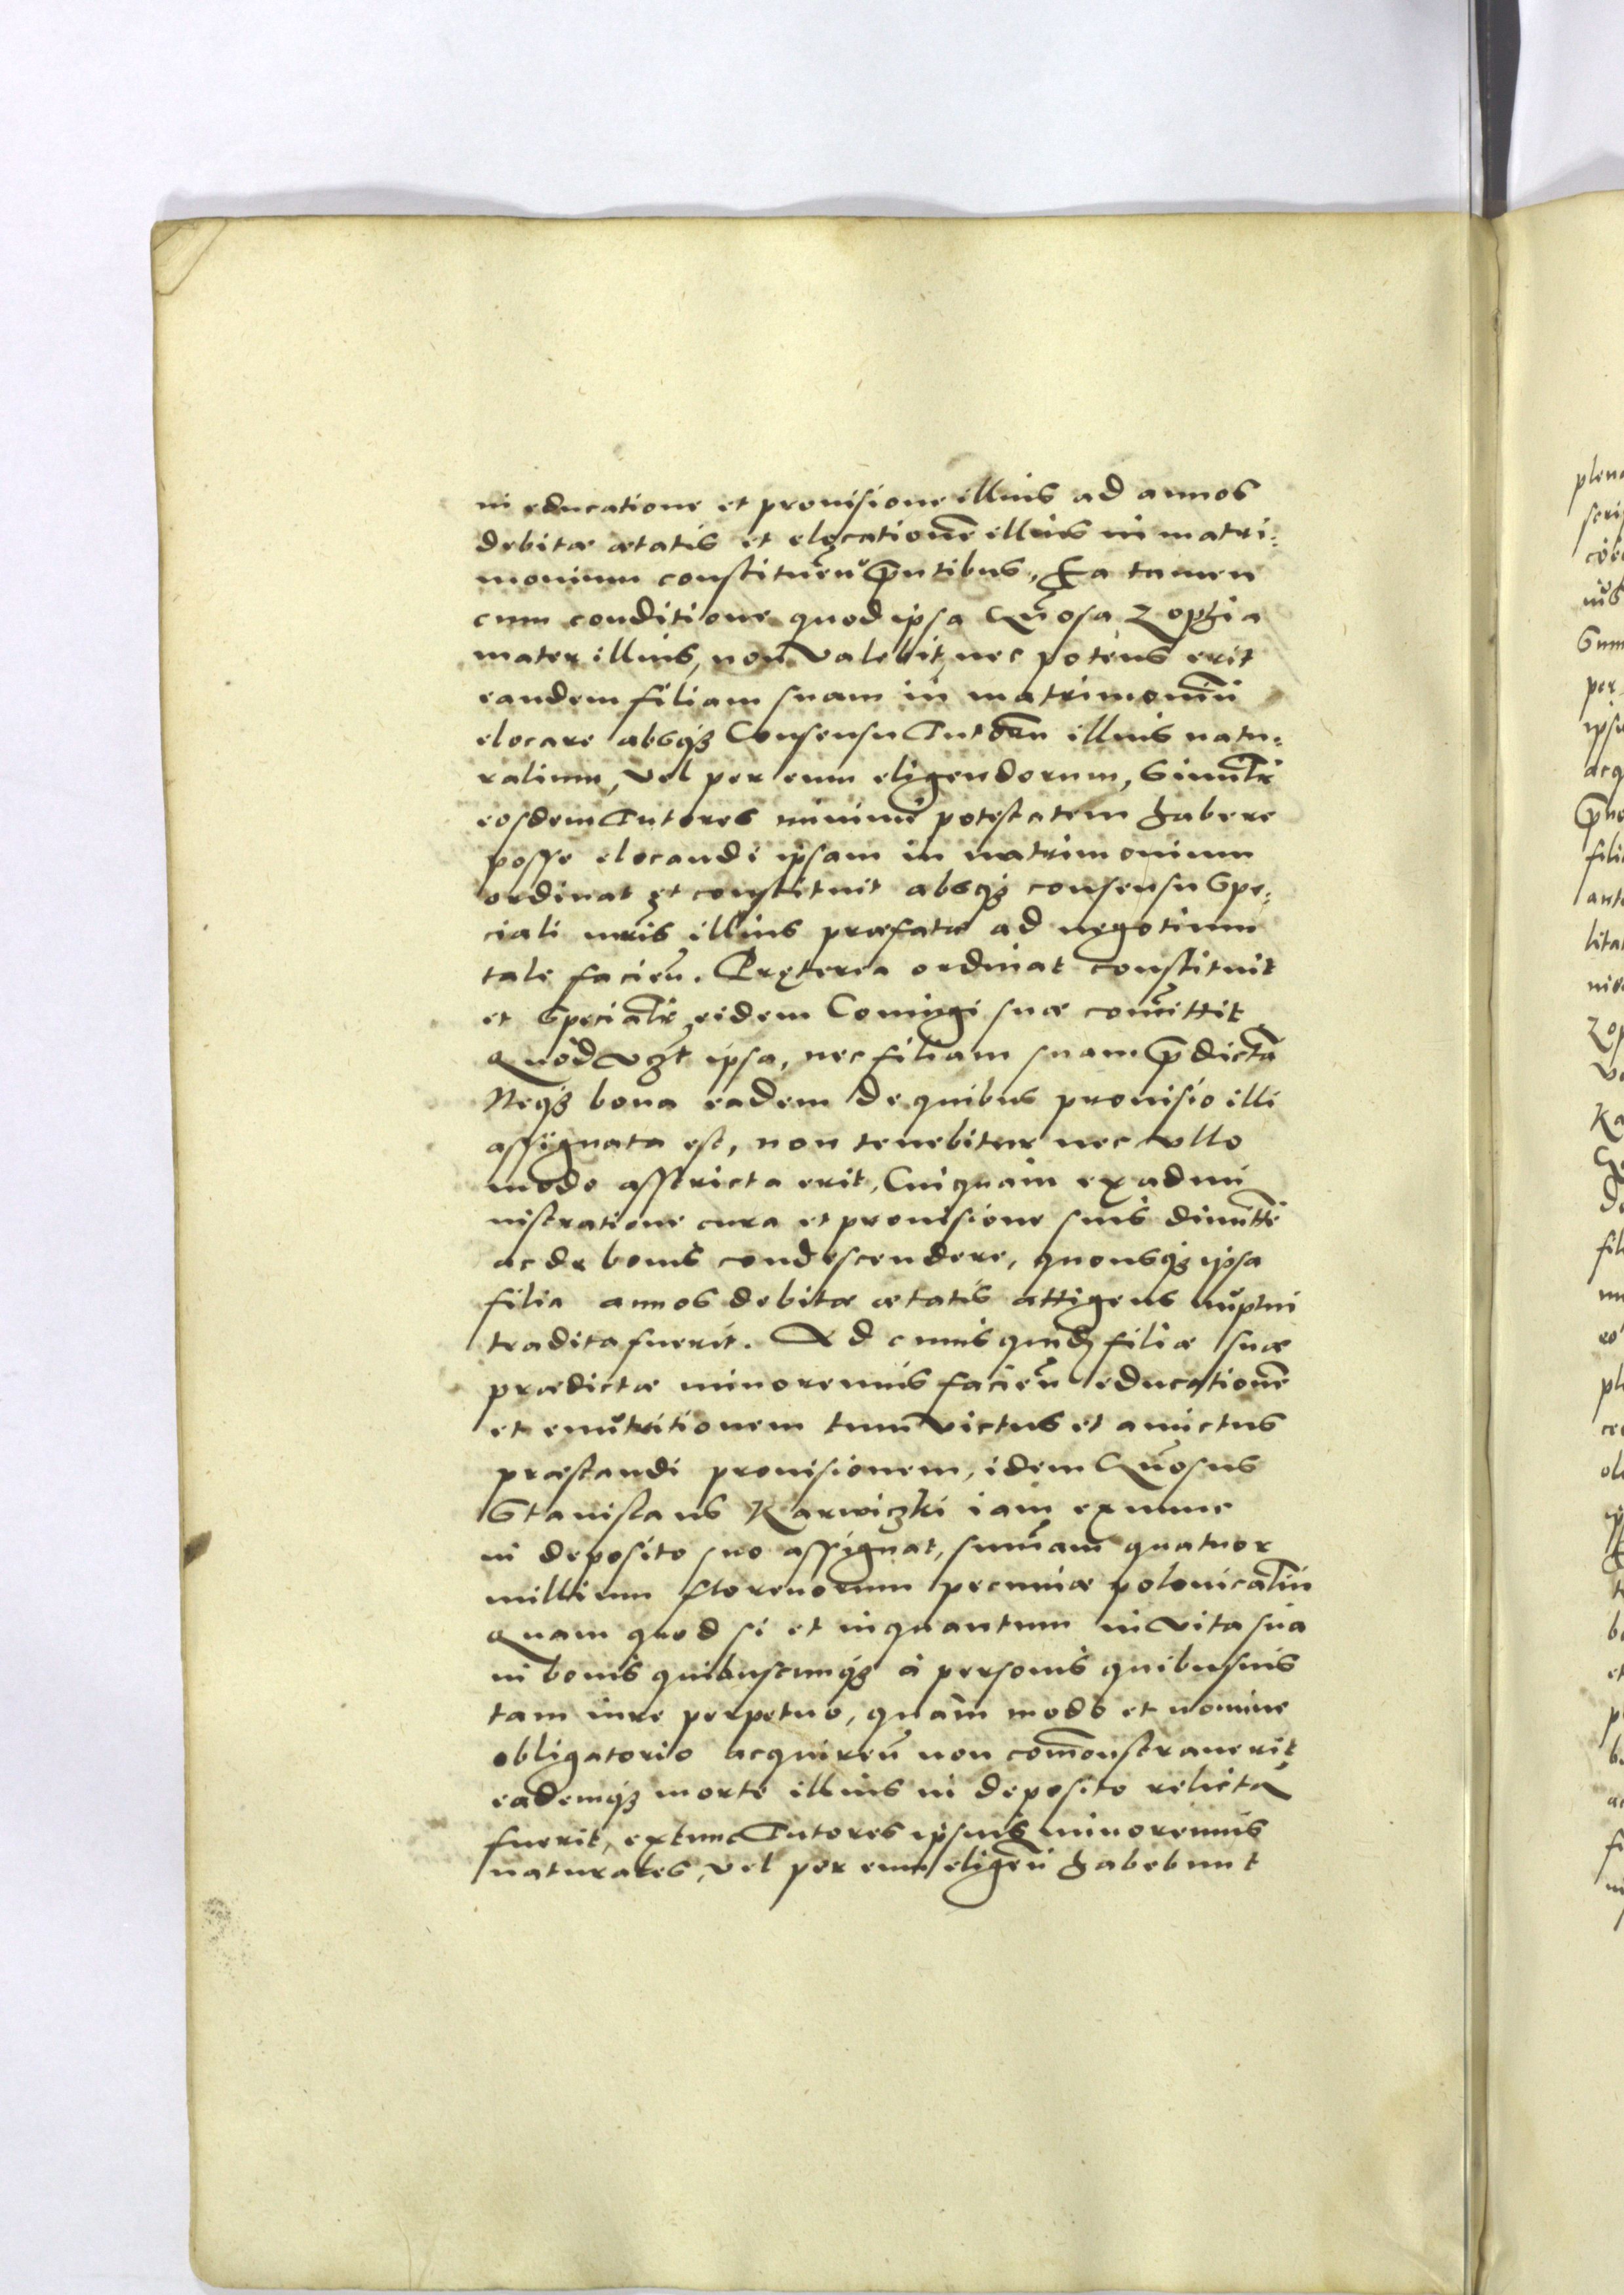 in educatione et prouisione illius ad annos
debitæ ætatis et elocatione͂ illius in matri:
monium constituen̄ p̄ntibus, Ea tamen
cum conditione quod ipsa G̃nosa Zophia
mater illius, non valebit, nec potens erit
eandem filiam suam in matrimoniū
elocare absq̨ Consensu Tutorū illius natu:
ralium, vel per eum eligendorum, Simul̃r
eosdem Tutores minime potestatem habere
posse elocandi ipsam in matrimonium
ordinat et constituit absq̨ consensu spe:
ciali mr̃is illius præfatæ ad negotium
tale facien̄. Præterea ordinat constituit
et Special̃r eidem Coniugi suæ com̃ittit
Quod vz̃t ipsa, nec filiam suam p̄dictā
Neq̨ bona eadem de quibus prouisio illi
assignata est, non tenebitur nec vllo
modo asstricta erit, Cuiquam ex admi
nistratione cura et prouisione suis dimitt̃e
ac de bonis condescendere, quousq̨ ipsa
filia annos debitæ ætatis attigens nuptui
tradita fuerit. Ad cuius quidẽ filiæ suæ
prædictæ minorennis facien̄ educatione͂
et enutritionem tum victus et amictus
præstandi prouisionem, idem G̃nosus
Stanislaus Karwiczki iam ex nunc
in deposito suo assignat, sum̃am quatuor
millium florenorum pecuniæ polonicaliū
Quam quod si et inquantum in vita sua
in bonis quibuscunq̨ à personis quibusuis
tam iure perpetuo, quàm modo et nomine
obligatorio acquiren̄ non com̃onstrauerit
eademq̨ morte illius in deposito relicta
fuerit, extunc Tutores ipsius minorennis
naturales, vel per eum eligen̄ habebunt